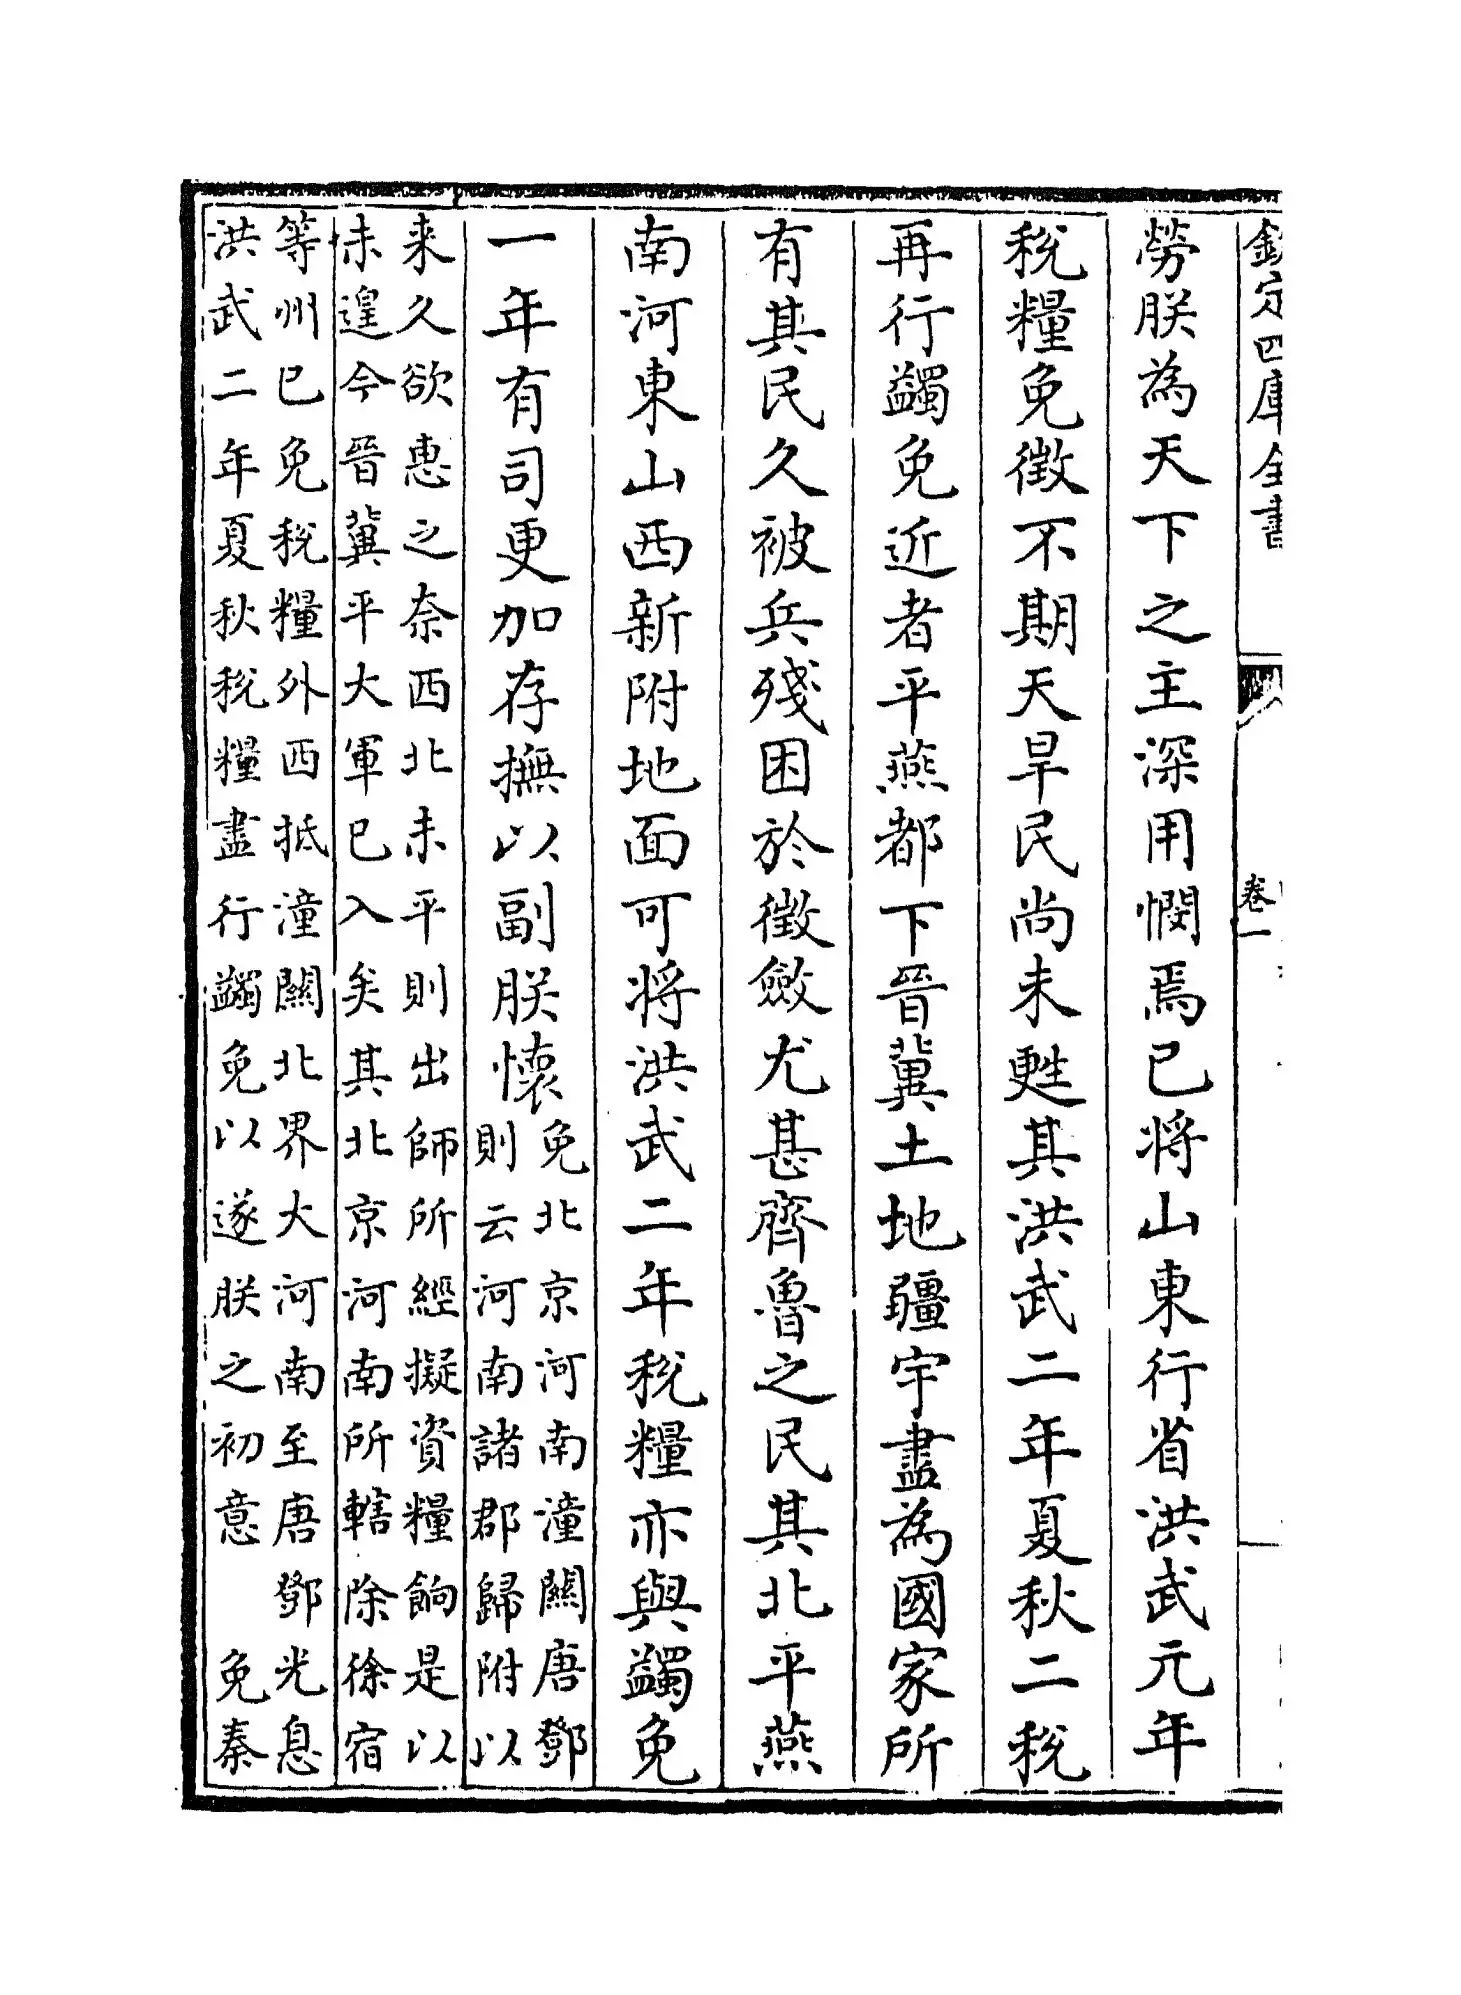 欽定四庫全書
卷一
勞朕為天下之主深用憫焉已將山東行省洪武元年
稅糧免徵不期天旱民尚未甦其洪武二年夏秋二稅
再行蠲免近者平燕都下晉冀土地疆宇盡為國家所
有其民久被兵殘困於徵斂尤甚齊魯之民其北平燕
南河東山西新附地面可將洪武二年稅糧亦與蠲免
一年有司更加存撫以副朕懷
免北京河南潼關唐鄧
則云河南諸郡歸附以
来久欲惠之奈西北未平則出師所經擬資糧餉是以
未遑今晉冀平大軍已入矣其北京河南所轄除徐宿
等州已免稅糧外西抵潼關北界大河南至唐鄧光息
洪武二年夏秋稅糧盡行蠲免以遂朕之初意 免秦